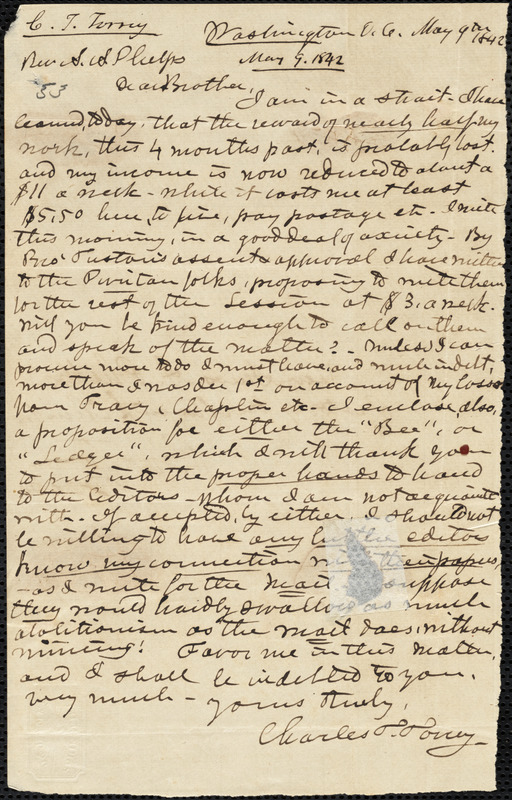 C. T. Torrey
Washington D.C. May 9th 1842
Rev. A. A Phelps
May 9. 1842
53
Dear Brother,
I am in a strait. I have
learned, today, that the reward of nearly half my
work, this 4 months past, is probably lost.
and my income is now reduced to about a
$11 a week - while it costs me at least
$5,50 here, to live, pay postage etc. I write
this morning, in a good deal of anxiety. By
Bro' assent & approval I have written
to the Puritan folks, proposing to write them
for the rest of the Session at $3. a week.
Will you be kind enough to call on them
and speak of the matter? - Unless I can
procure more to do I must leave, and much in debt,
more than I was Dec 1st on account of my losses
from Tracy, Chaplin etc. I enclose, also,
a proposition for either the "Bee", or
"Ledger", which I will thank you
to put into the proper hands to hand
to the Editors - whom I am not acquainted
with. If accepted, by either, I should not
be willing to have any but the editors
know my connection with their papers,
- as I write for the Mail suppose
they would hardly swallow as much
abolitionism as the mail does, without
wincing! Favor me in this matter,
and I shall be indebted to you,
very much - yours truly,
Charles T. Torrey